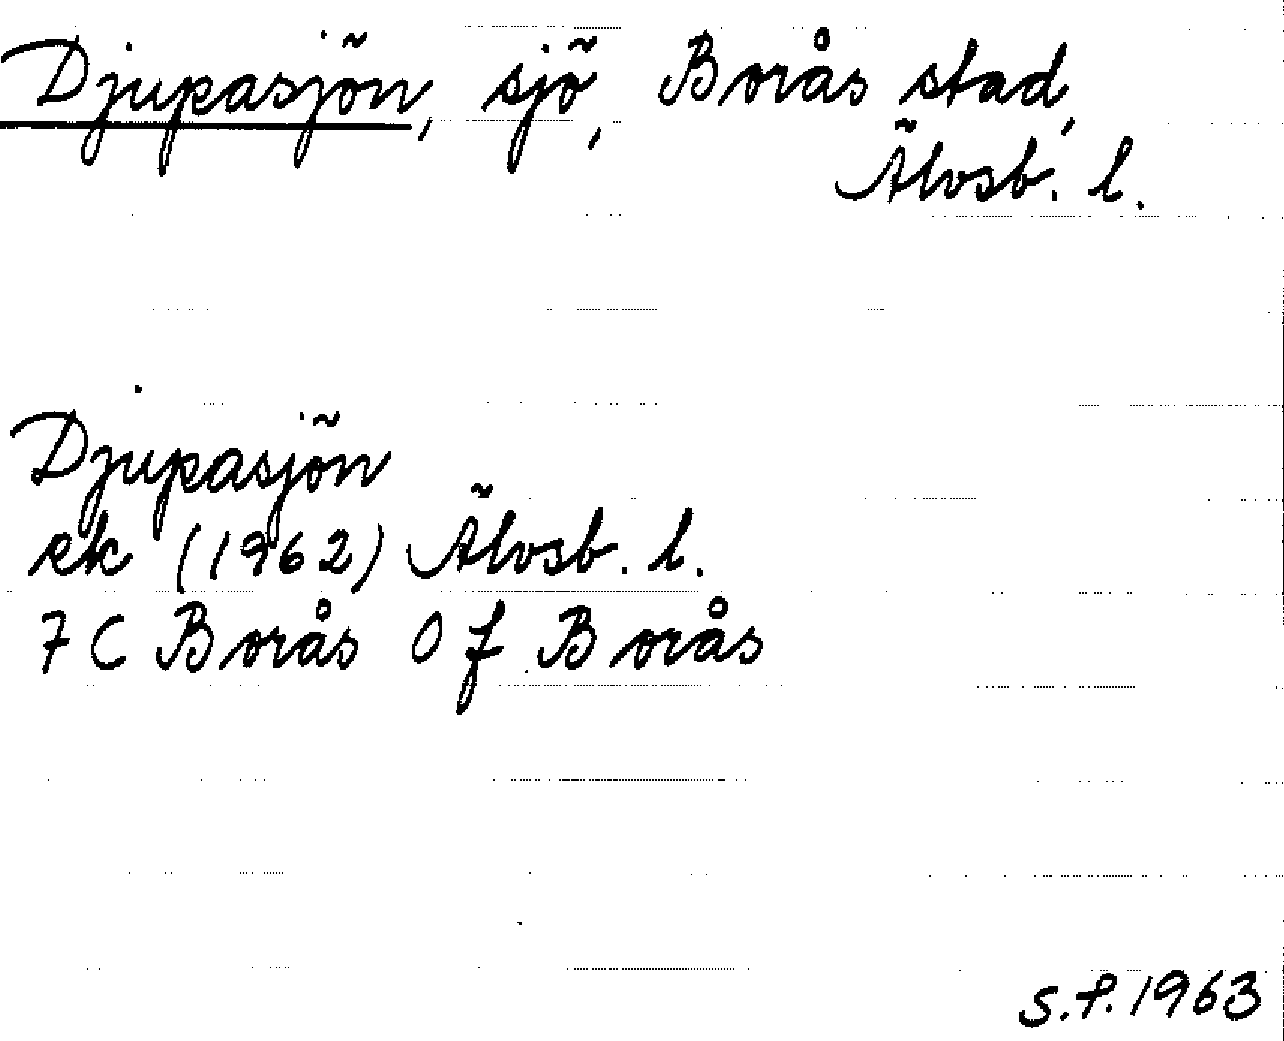 Djupasjön, sjö, Borås stad,
Älvsb. l.
Djupasjön
ek (1962) Älvsb. l.
7 C Borås 0 f Borås
S.P. 1963